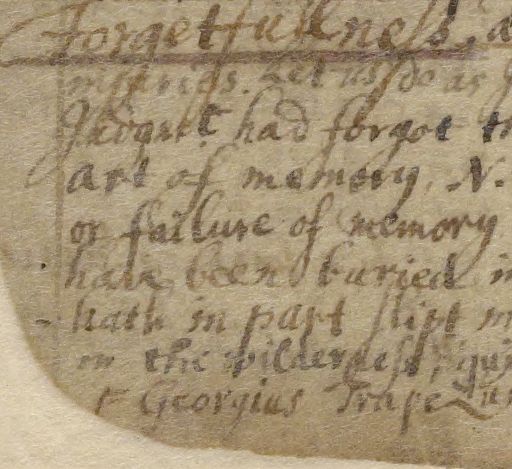 forgetfullness, a
injuries. Let us do as
had forgot th
art of memory, N.
or failure of memory
have been buried in
hath in part slipt m
in the wilderness, qui
Georgius Trape